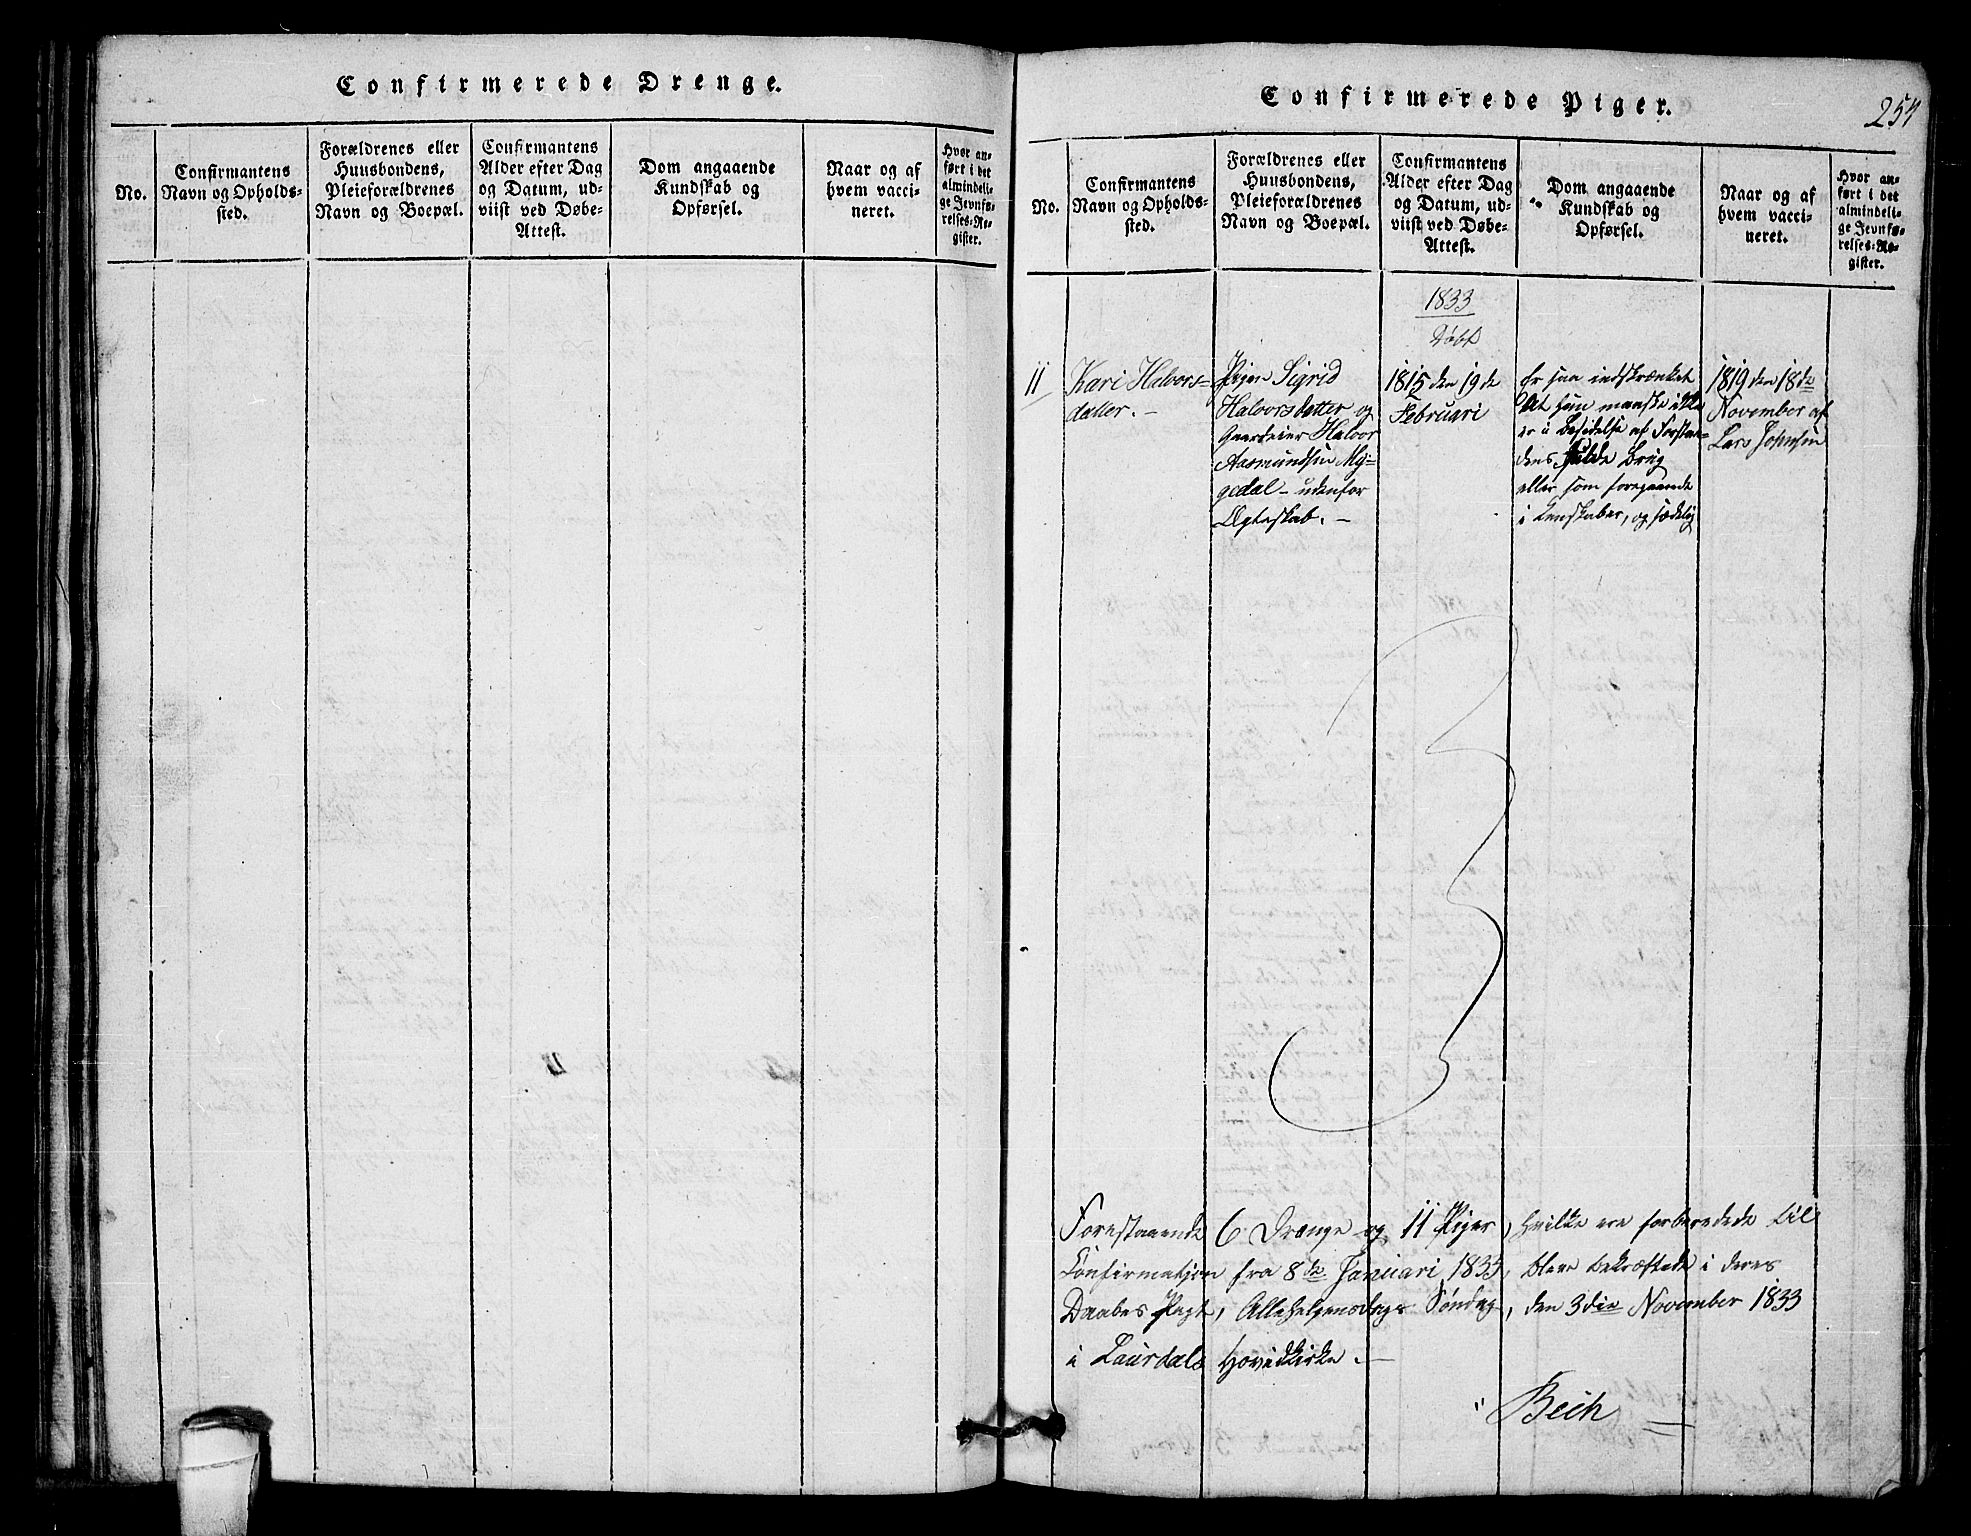 Confirmerede Drenge.
No.
Confirmantens
Navn og Opholds-
sted.
Forældrenes eller
Huusbondens,
Pleieforældrenes
Navn og Boepæl.
Confirmantens
Alder efter Dag
og Datum, ud-
viist ved Døbe-
Attest.
Dom angaaende
Kundskab og
Opførsel.
Naar og af
hvem vacci-
neret.
Hvor an-
ført i det
almindeli-
ge Jevnfø-
relses-Re-
gister.
Confirmerede Piger.
254
No.
Confirmantens
Navn og Opholds-
sted.
Forældrenes eller
Huusbondens,
Pleieforældrenes
Navn og Boepæl.
Confirmantens
Alder efter Dag
og Datum, ud-
viist ved Døbe-
Attest.
Dom angaaende
Kundskab og
Opførsel.
Naar og af
hvem vacci-
neret.
Hvor an-
ført i det
almindeli-
ge Jevnfø-
relses-Re-
gister.
1833
Døbt
11
Kari Halvors-
datter. -
Pigen Sigrid
Halvorsdatter og
Gaardeier Halvor
Aasmundsen My-
gedal - udenfor
Ægteskab. -
1815 den 19de
Februari
Er saa indskrænket
At hun maaske ikke
er i Besidelse af Forstan-
dens fulde Brug
eller som foregaaende
i Kunskaber, og sædelig
1819 den 18de
November af
Lars Johnsen
Forestaaende 6 Drenge og 11 Piger, hvilke ere forberedede til
Confirmatjon fra 8de Januari 1833, bleve bekræftede i deres
Daabes Pagt, Allehelgensdags Søndag, den 3die November 1833
i Laurdals Hovedkirke. -
Bech